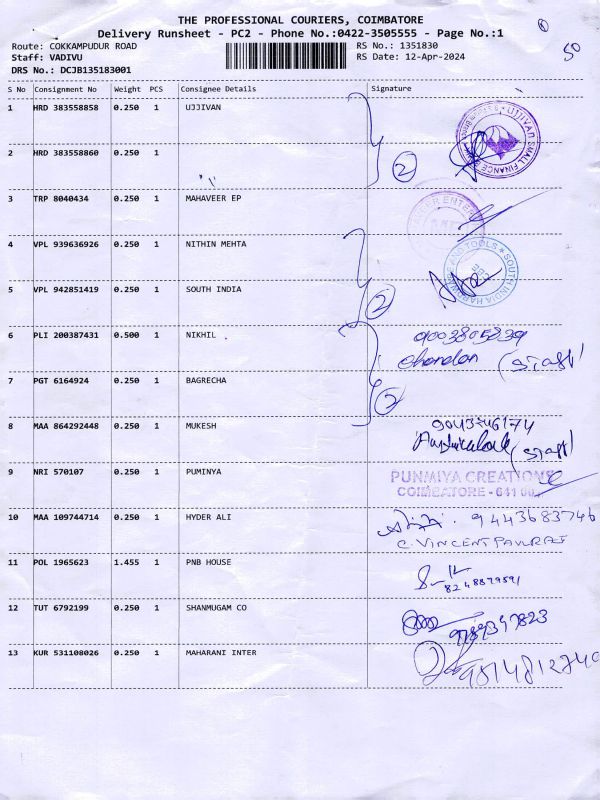 THE PROFESSIONAL COURIERS, COIMBATORE
Delivery Runsheet - PC2 - Phone No.:0422-3505555 - Page No.:1
Route: COKKAMPUDUR ROAD RS No.: 1351830 50
Staff: VADIVU RS Date: 12-Apr-2024
DRS No.: DCJB135183001
S No Consignment No Weight PCS Consignee Details Signature
1 HRD 383558858 0.250 1 UJJIVAN
UJJIVAN SMALL FINANCE
2 HRD 383558860 0.250 1 2
3 TRP 8040434 0.250 1 MAHAVEER EP
4 VPL 939636926 0.250 1 NITHIN MEHTA
AND TOOLS * SOUTH INDIA
5 VPL 942851419 0.250 1 SOUTH INDIA 2
6 PLI 200387431 0.500 1 NIKHIL 9003805239
Chandan (staff)
7 PGT 6164924 0.250 1 BAGRECHA 2
8 MAA 864292448 0.250 1 MUKESH
(staff)
9 NRI 570107 0.250 1 PUMINYA PUNMIYA CREATIONS
COIMBATORE - 641 001
10 MAA 109744714 0.250 1 HYDER ALI 9443683746
C. VINCENT PAULRAJ
11 POL 1965623 1.455 1 PNB HOUSE
12 TUT 6792199 0.250 1 SHANMUGAM CO
13 KUR 531108026 0.250 1 MAHARANI INTER